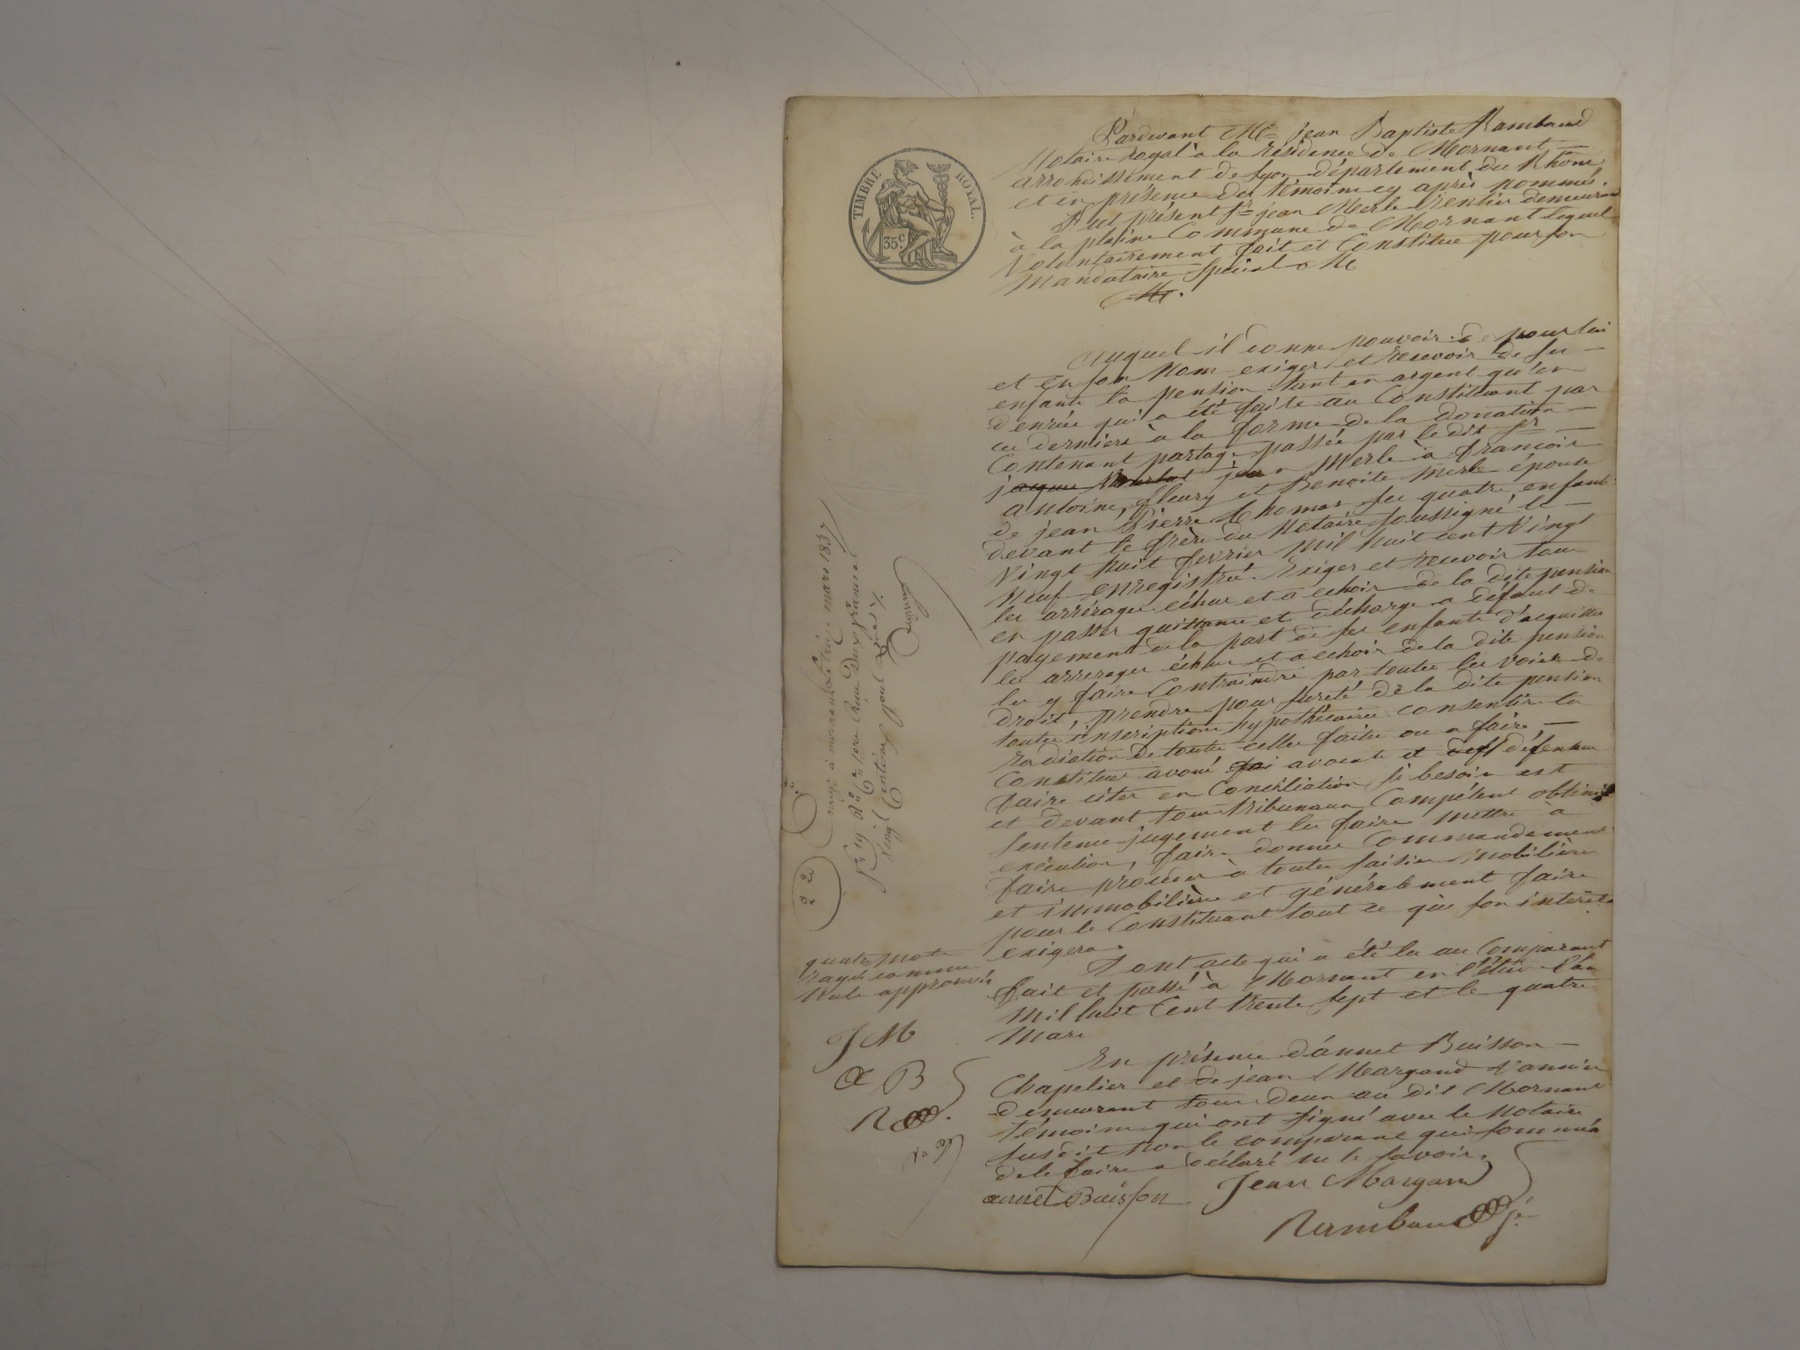 TIMBRE ROYAL.
35 c.
Pardevant Me jean Baptiste Rambaud
Notaire royal à la résidence de Mornant
arrondissement de Lyon département du Rhône,
et en présence des témoins cy après nommés,
Fut présent sr jean Merle rentier demeurant
à la plaine Commune de Mornant lequel
Volontairement fait et Constitue pour son
Mandataire Spécial Me
Me.
Auquel il donne pouvoir de pour lui
et en son Nom exiger et recevoir de ses
enfants la pension tant en argent qu'en
denrées qui a été faite au Constituant par
ces derniers à la forme de la donation
Contenant partage passée par le dit sr
jacques jean Merle à françois
antoine, fleury et Benoite Merle épouse
de jean Pierre Thomas ses quatre enfants
devant le frère du Notaire soussigné le
Vingt huit fevrier Mil huit cent Vingt
Neuf enregistré. Exiger et recevoir tous
les arrérages échus et a echoir de la dite pension
en passer quittance et décharge a défaut de
payement de la part de ses enfants d'acquitter
les arrerages échus et a echoir de la dite pension
les y faire Contraindre par toutes les voies de
droit, prendre pour sureté de la dite pension
toutes inscriptions hypothécaires consentir la
radiation de toutes celles faites ou a faire
Constituer avoué avocats et deff défenseurs
faire citer en Conciliation si besoin est
et devant tous tribunaux Compétents obtenir
sentence jugement les faire mettre à
exécution, faire donner Commandement
faire procéder à toutes saisies Mobilières
et immobilières et généralement faire
pour le Constituant tout ce que son intérêts
exigera.
Dont acte qui a été lu au Comparant
fait et passé à Mornant en l'étude l'an
Mil huit Cent trente sept et le quatre
Mars
En présence d'annet Buisson
Chapelier et de jean Margand
demeurant tous deux au dit Mornant
témoins qui ont signé avec le Notaire
susdit non le comparant qui sommé
de le faire a déclaré ne le savoir.
annet Buisson Jean Margand
Rambaud
quatre mots
rayés comme
nuls approuvés
J M
a B
R
mars 1837